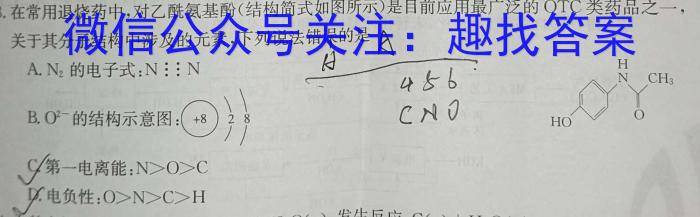 .在常用退烧药中,对乙酰氨基酚(结构简式如图所示)是目前应用最广泛的OTC类药品之一,
微信公众号关注:趣找答案
关于其分子结构中涉及的元素,下列说法错误的是
A. N₂ 的电子式:N⋮⋮N
A
4 5 6
C N O
B. O²⁻ 的结构示意图: +8 2 8
H
N
CH₃
HO
O
C. 第一电离能:N>O>C
D. 电负性:O>N>C>H
发生反应